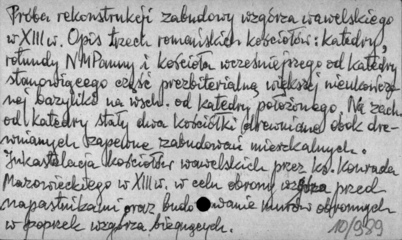 Próba rekonstrukcji zabudowy wzgórza wawelskiego
w XIII w. Opis trzech romańskich kościołów: katedry,
rotundy NMPanny i kościoła wcześniejszego od katedry
stanowiącego część prezbiterialną większej nieukończo-
nej bazyliki na wsch. od katedry położonego. Na zach.
od katedry stały dwa kościółki drewniane obok dre-
wnianych zapewne zabudowań mieszkalnych.
Inkastelacja kościołów wawelskich przez ks. Konrada
Mazowieckiego w XIII w. w celu obrony wzgórza przed
napastnikami oraz budowanie murów obronnych
w poprzek wzgórza biegnących.
10/959